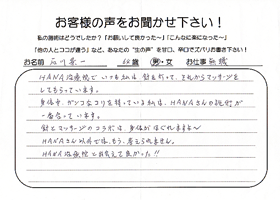 お客様の声をお聞かせ下さい！
私の施術はどうでしたか？「お願いして良かった～」「こんなに楽になった～」
「他の人とココが違う」など、あなたの“生の声”を甘口、辛口でズバリお書き下さい！
お名前 石川 一 68歳 男・女 お仕事 無職
HANA治療院でいつも私は鍼を打って、それからマッサージを
してもらっています。
身体中、ガンコなコリを持っている私は、HANAさんの施術が
一番合っています。
鍼とマッサージのコラボは、身体がほぐれますよ～
HANAさん以外では、もう、考えられません。
HANA治療院と出会えて良かった!!